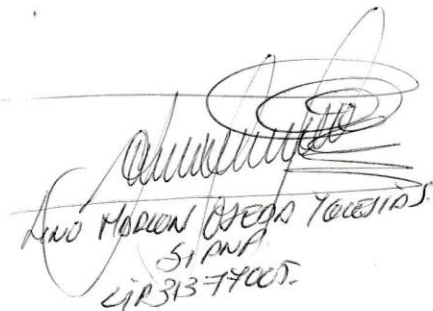 LINO MARLON OSEDA YGLESIAS
S1 PNP
CIP 31377005.